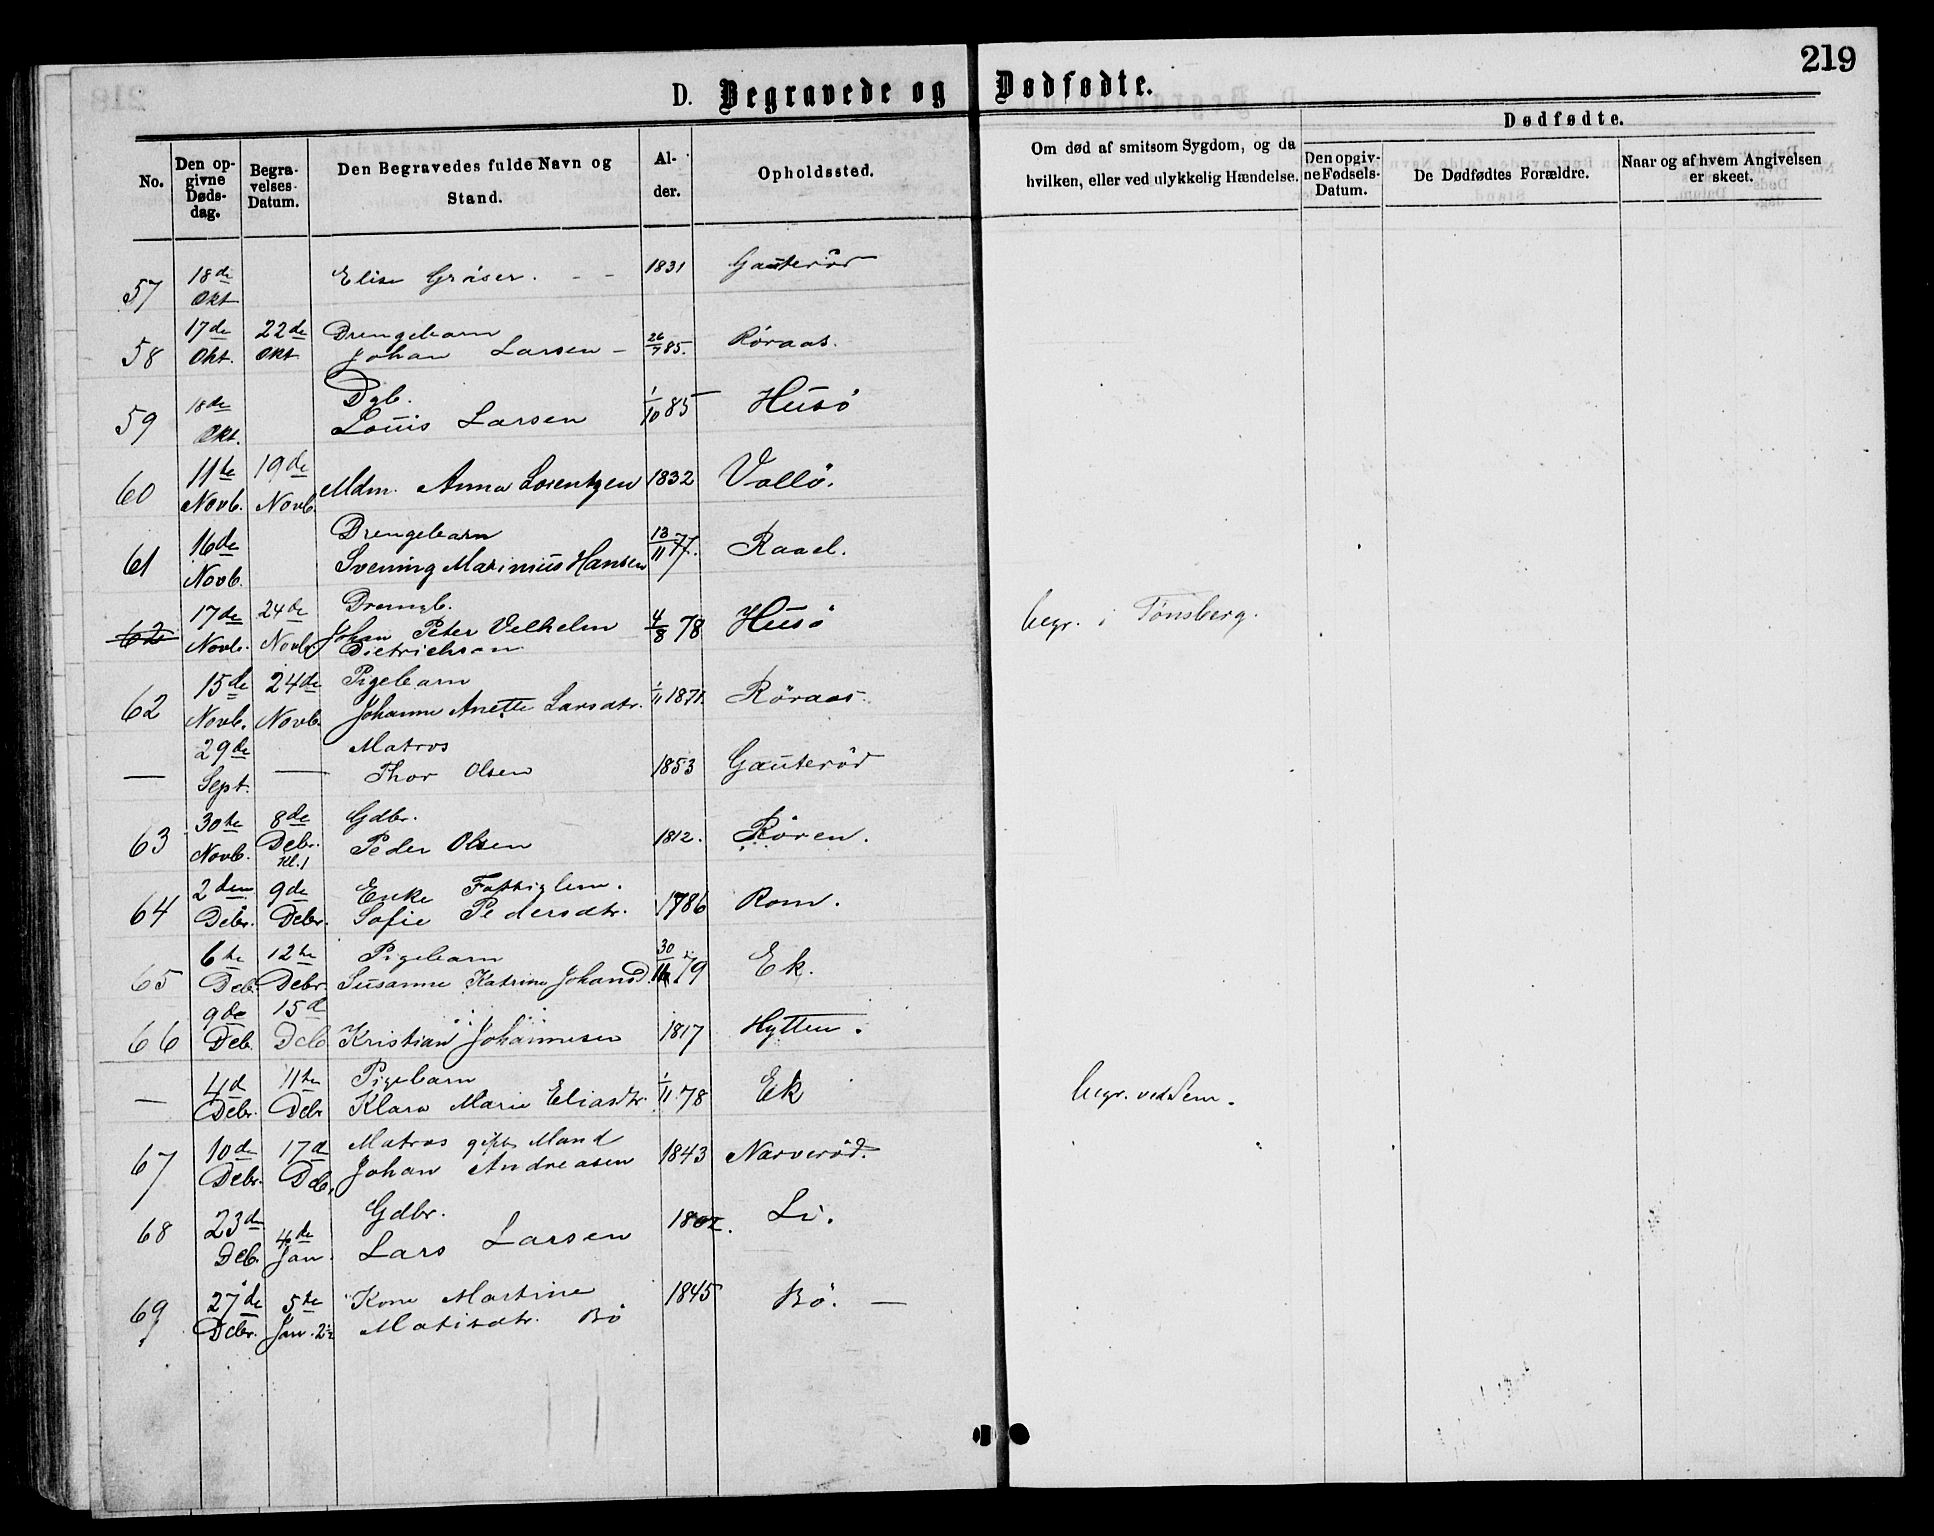 219
D. Begravede og Dødfødte.
No.
Den opgivne Dødsdag.
Begravelses-Datum.
Den Begravedes fulde Navn og Stand.
Alder.
Opholdssted.
Om død af smitsom Sygdom, og da hvilken, eller ved ulykkelig Hændelse.
Dødfødte.
Den opgivne Fødsels-Datum.
De Dødfødtes Forældre.
Naar og af hvem Angivelsen er skeet.
57 18de Okt Elise Gröser. - - 1831 Gauterød
58 17de Okt. 22de Okt Drengebarn Johan Larsen - 26/7 85. Røraas.
59 18de Okt. Dgb. Louis Larsen 1/10 85 Husø
60 11te Novb. 19de Novb. Mdm. Anna Lorentzen 1832 Vallø.
61 16de Novb. Drengebarn Svening Marinius Hansen 13/11 77. Raael.
62 17de Novb. 24de Novb. Drengb. Johan Peter Vilhelm Dietrichson 4/8 78 Husø begr. i Tønsberg.
62 15de Novb. 24de Novb. Pigebarn Johanne Anette Larsdtr. 1/11 1871. Røraas.
— 29de Sept. — Matros Thor Olsen 1853 Gauterød
63 30te Novb. 8de Debr. Kl. 1 Gdbr. Peder Olsen 1812. Røren.
64 2den Debr. 9de Debr. Enke Fattiglem. Sofie Pedersdtr. 1786 Rom.
65 6te Deb. 12te Debr. Pigebarn Susanne Katrine Johansd. 30/11 79 Ek.
66 9de Deb. 15d Deb Kristian Johannesen 1817 Hytten.
— 4d Debr. 11te Debr Pigebarn Klara Marie Eliasdtr. 1/11 78 Ek begr. ved Sem.
67 10de Debr. 17d Deb. Matros gift Mand Johan Andreasen 1843 Narverød.
68 23de Deb. 4de Jan. Gdbr. Lars Larsen 1802. Li.
69 27de Debr. 5te Jan. 2½ Kone Martine Matisdtr. Bø 1845 Bø. —